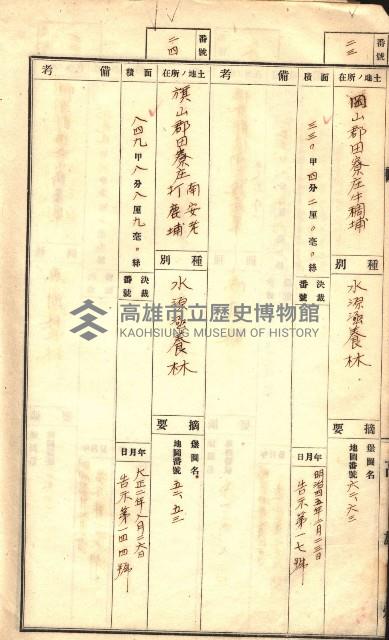 番號
二三
土地ノ所在
岡山郡田寮庄牛稠埔
種別
水源涵養林
摘要
堡圖名
地圖番號 六二、六三
面積
三三〇甲四分二厘〇毫〇絲
決裁番號
年月日
明治四五年二月二三日
告示第一七號
備考
番號
二四
土地ノ所在
旗山郡田寮庄南安老
打鹿埔
種別
水源涵養林
摘要
堡圖名
地圖番號 五二、五三
面積
八四九甲八分八厘九毫〇絲
決裁番號
年月日
大正二年八月二六日
告示第一四四號
備考
高雄市立歷史博物館
KAOHSIUNG MUSEUM OF HISTORY